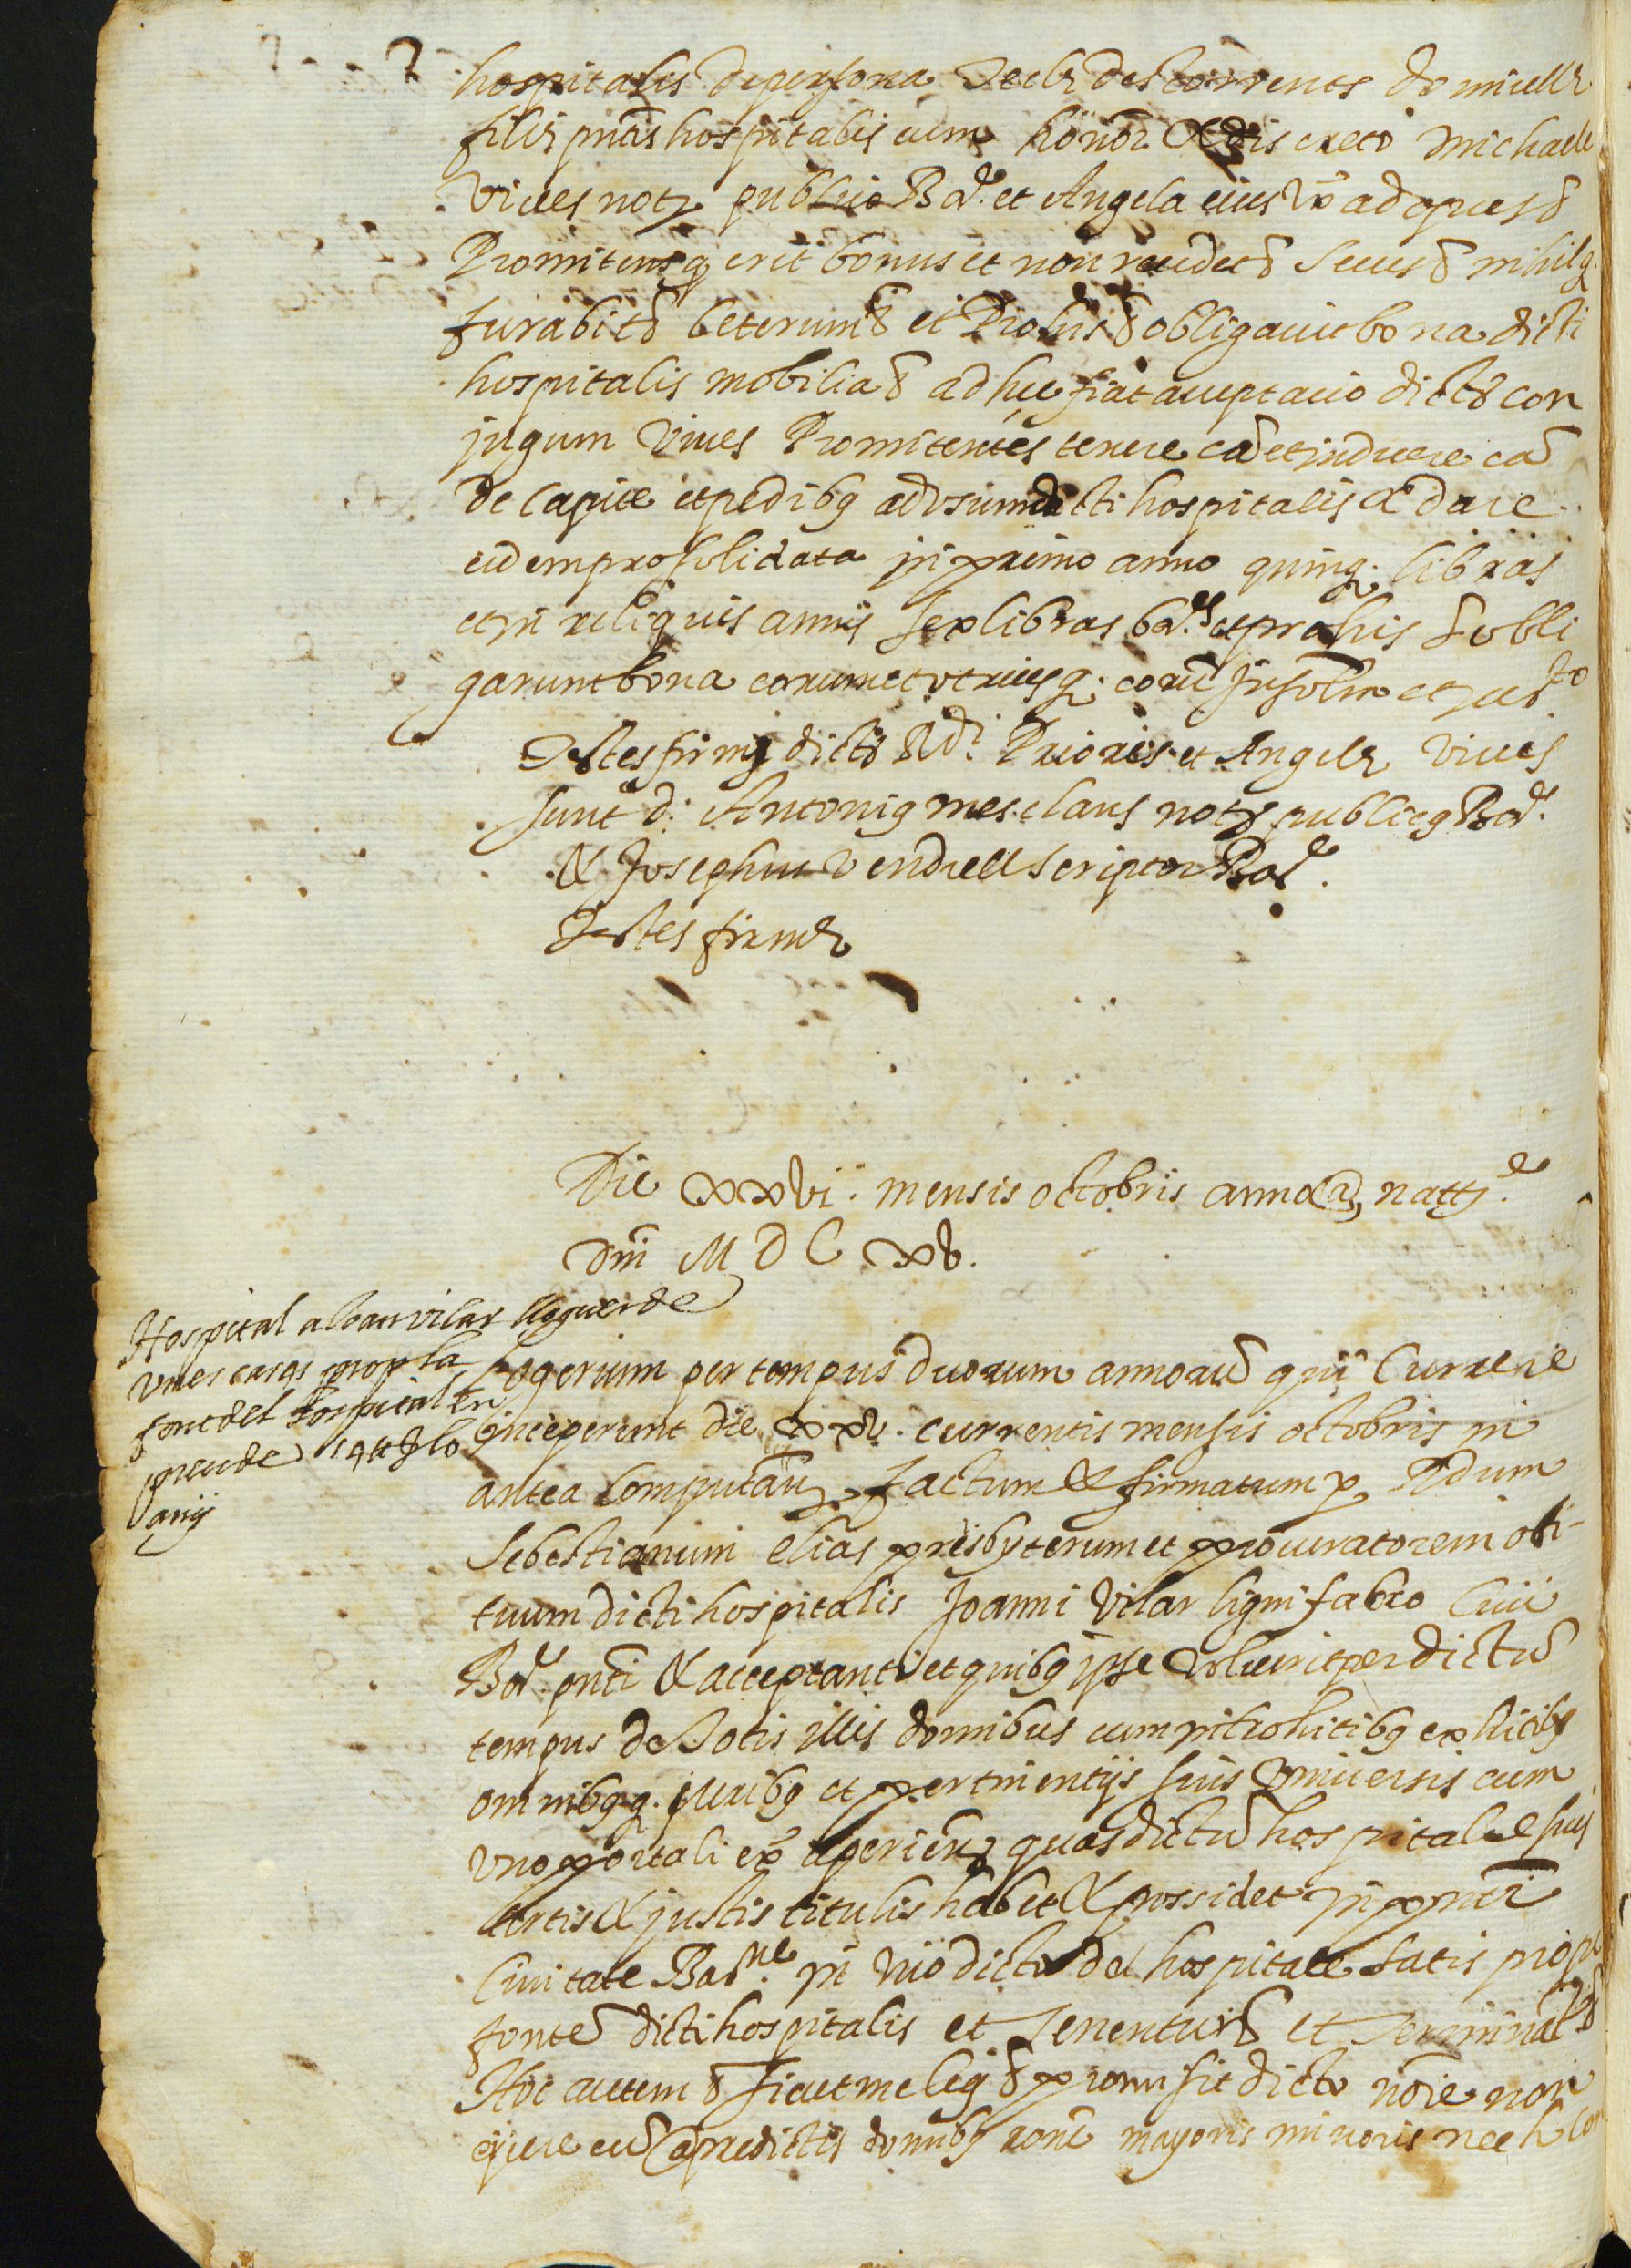 hospitalis de persona Teclę des torrents domicellę
filię pntis hospitalis cum honor. & discreto Michaele
Viues notº publico Bar.e et Angela eius vx ad opus &
Promitens q erit bonus et non recedet & secus & nihilq.
furabit & ceterum & et Pro his & obligauit bona dicti
hospitalis mobilia & ad hęc fiat acceptatio dictor con
jugum Viues Promitentes tenere eã et induere eã
de capite et pedibq ad vsum dicti hospitalis & dare
eidem pro solidata in primo anno quinq. libras
et in reliquis annis sex libras bar.s et pro his & obli
garunt bona eorum et vtriusq. eorũ insolm et jur.to
Testes firmę dictor Rdi. Prioris et Angelę Viues
sunt d: Antoniq mesclans notº publicq Bar.e
& Josephus Vendrell scriptor Bar.e
Testes firmę
Die xxvii. mensis octobris anno a natte.
Dñi M D C xv.
Hospital a Joan vilar lloguer de
vnes casas prop la
font del hospital en
preu de 14 ll lo
any
Logerium per tempus duorum annorũ qui Currere
inceperunt die xxv. currentis mensis octobris in
antea computañ factum & firmatum p Rdum
Sebestianum elias presbyterum et procuratorem obi-
tuum dicti hospitalis Joanni Vilar lignifabro Ciui
Bar. pnti & acceptanti et quibq ipse voluerit per dictũ
tempus de totis illis domibus cum introhitibq exhitibq
omnibqq. juribq et pertinentijs suis vniuersis cum
vno portali ex aperieñ quas dictũ hospitale suis
certis & justis titulis habet & possidet in pnti
Ciuitate Bar.ne in vico dicto del hospitale satis prope
fontẽ dicti hospitalis et Tenentur & et Terminat &
Hoc autem & sicut meliq & promisit dicto noie non
ejicere eũ a predictis domibq rone mayoris minoris nec h